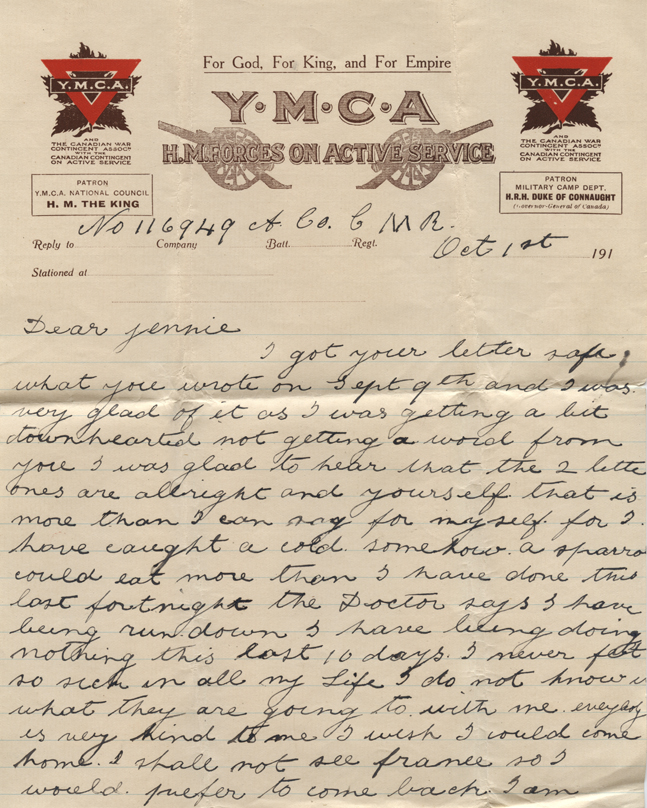 For God, For King, and For Empire
Y.M.C.A.
Y·M·C·A
Y.M.C.A.
H.M. FORCES ON ACTIVE SERVICE
AND
THE CANADIAN WAR
CONTINGENT ASSOCN
WITH THE
CANADIAN CONTINGENT
ON ACTIVE SERVICE
AND
THE CANADIAN WAR
CONTINGENT ASSOCN
WITH THE
CANADIAN CONTINGENT
ON ACTIVE SERVICE
PATRON
Y.M.C.A. NATIONAL COUNCIL
H. M. THE KING
PATRON
MILITARY CAMP DEPT.
H.R.H. DUKE OF CONNAUGHT
(Governor-General of Canada)
No 116949 A Co. C M R.
Reply to Company Batt. Regt.
Oct 1st 191
Stationed at
Dear Jennie
I got your letter safe
what you wrote on Sept 9th and I was
very glad of it as I was getting a bit
downhearted not getting a word from
you I was glad to hear that the 2 little
ones are allright and yourself. that is
more than I can say for myself. for I
have caught a cold. somehow. a sparro
could eat more than I have done this
last fortnight the Doctor says I have
being run down I have being doing
nothing this last 10 days. I never felt
so sick in all my Life I do not know
what they are going to with me. everybody
is very kind to me I wish I could come
home. I shall not see france so I
would. prefer to come back. I am